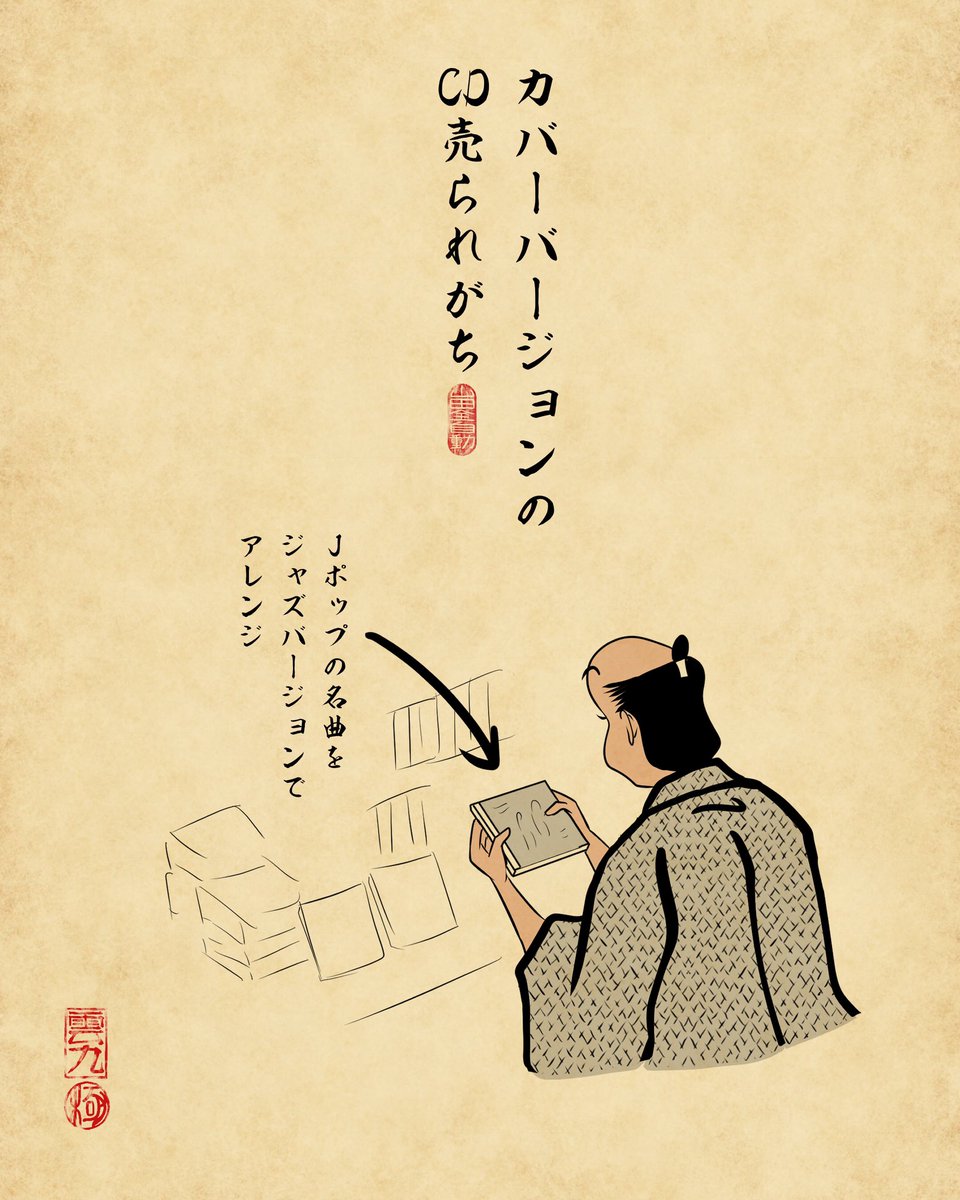 カバーバージョンの
CD売られがち
Jポップの名曲を
ジャズバージョンで
アレンジ
雲九
極